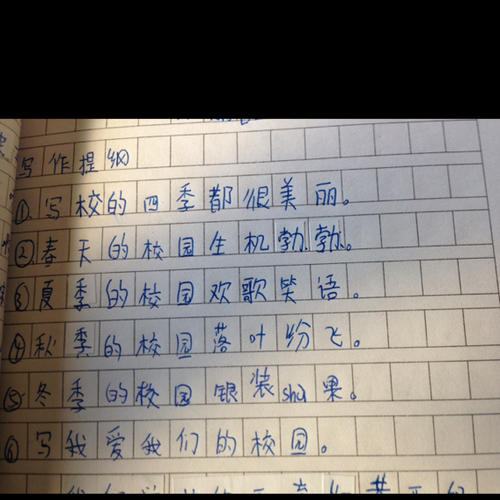 写作提纲
①写校的四季都很美丽。
②春天的校园生机勃勃。
③夏季的校园欢歌笑语。
④秋季的校园落叶纷飞。
⑤冬季的校园银装shu果。
⑥写我爱我们的校园。